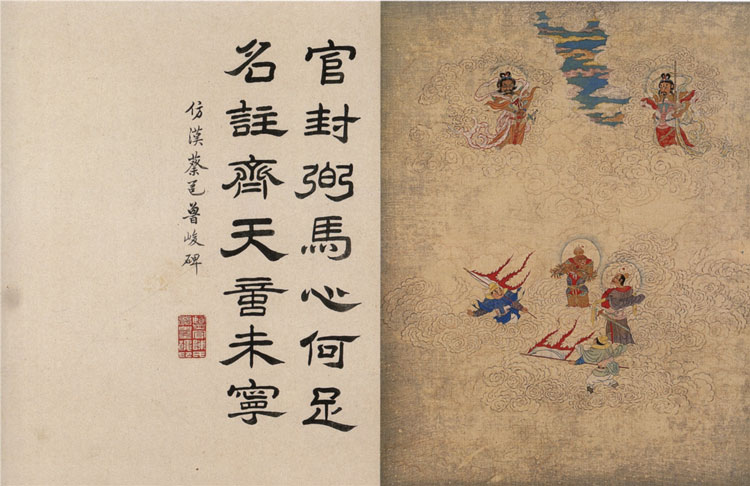 官封弼馬心何足
名註齊天意未寧
仿漢蔡邕魯峻碑